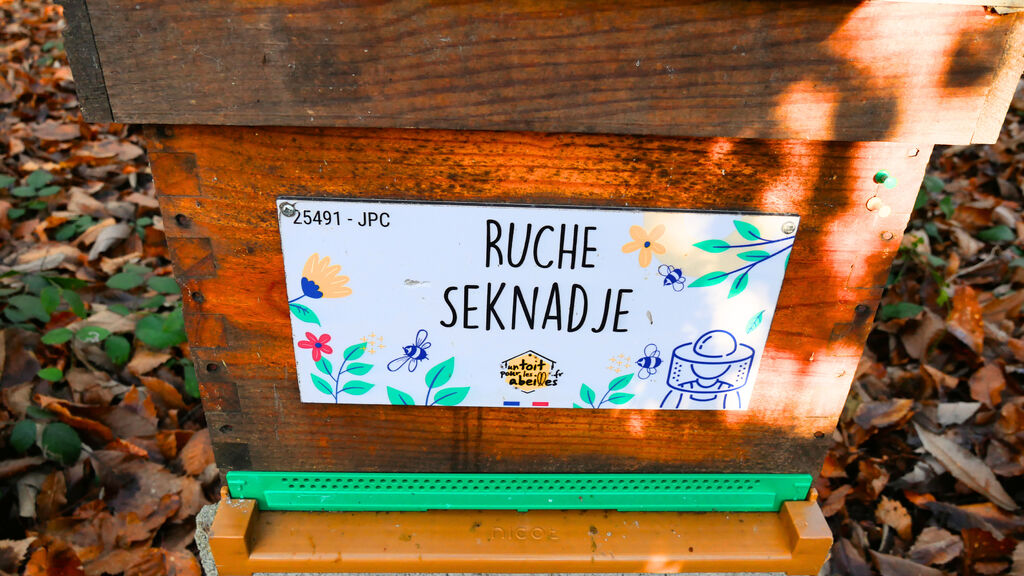 25491 - JPC
RUCHE
SEKNADJE
un toit
pour les .fr
abeilles
NICOT